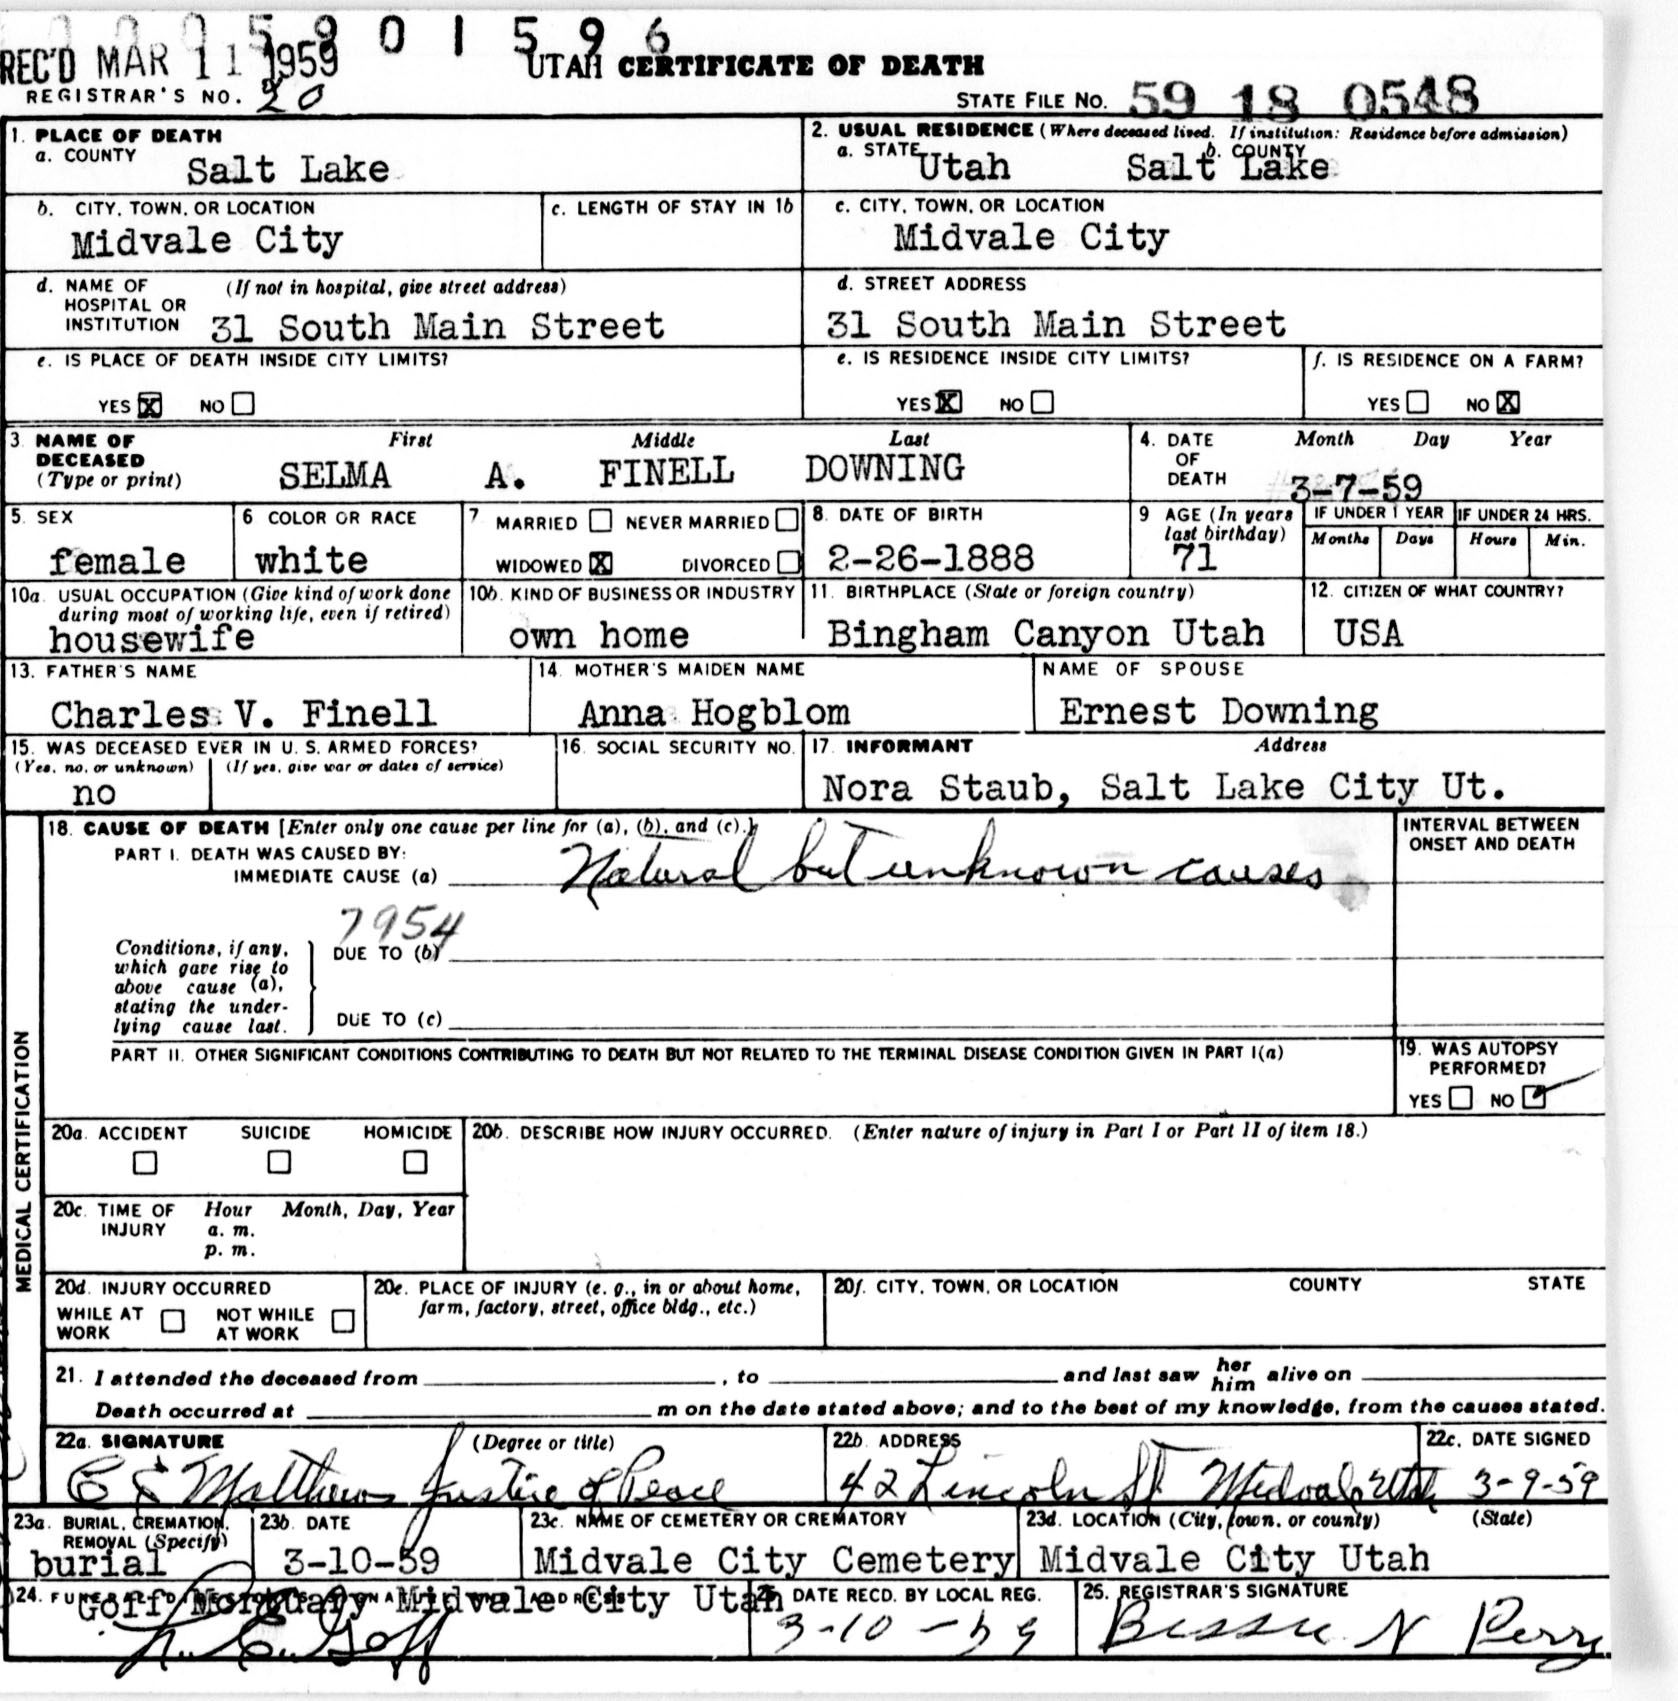 0 0 0 5 9 0 1 5 9 6
REC'D MAR 11 1959
UTAH CERTIFICATE OF DEATH
REGISTRAR'S NO. 20
STATE FILE NO. 59 18 0548
1. PLACE OF DEATH
a. COUNTY
Salt Lake
2. USUAL RESIDENCE (Where deceased lived. If institution: Residence before admission)
a. STATE Utah b. COUNTY Salt Lake
b. CITY, TOWN, OR LOCATION
Midvale City
c. LENGTH OF STAY IN 1b
c. CITY, TOWN, OR LOCATION
Midvale City
d. NAME OF HOSPITAL OR INSTITUTION (If not in hospital, give street address)
31 South Main Street
d. STREET ADDRESS
31 South Main Street
e. IS PLACE OF DEATH INSIDE CITY LIMITS?
YES X NO
e. IS RESIDENCE INSIDE CITY LIMITS?
YES X NO
f. IS RESIDENCE ON A FARM?
YES NO X
3. NAME OF DECEASED (Type or print)
First Middle Last
SELMA A. FINELL DOWNING
4. DATE OF DEATH
Month Day Year
3-7-59
5. SEX
female
6. COLOR OR RACE
white
7. MARRIED NEVER MARRIED
WIDOWED X DIVORCED
8. DATE OF BIRTH
2-26-1888
9 AGE (In years last birthday)
71
IF UNDER 1 YEAR
Months Days
IF UNDER 24 HRS.
Hours Min.
10a. USUAL OCCUPATION (Give kind of work done during most of working life, even if retired)
housewife
10b. KIND OF BUSINESS OR INDUSTRY
own home
11. BIRTHPLACE (State or foreign country)
Bingham Canyon Utah
12. CITIZEN OF WHAT COUNTRY?
USA
13. FATHER'S NAME
Charles V. Finell
14. MOTHER'S MAIDEN NAME
Anna Hogblom
NAME OF SPOUSE
Ernest Downing
15. WAS DECEASED EVER IN U. S. ARMED FORCES?
(Yes, no, or unknown) (If yes, give war or dates of service)
no
16. SOCIAL SECURITY NO.
17. INFORMANT Address
Nora Staub, Salt Lake City Ut.
MEDICAL CERTIFICATION
18. CAUSE OF DEATH [Enter only one cause per line for (a), (b), and (c).]
PART I. DEATH WAS CAUSED BY:
IMMEDIATE CAUSE (a) Natural but unknown causes
INTERVAL BETWEEN ONSET AND DEATH
7954
Conditions, if any, which gave rise to above cause (a), stating the underlying cause last.
DUE TO (b)
DUE TO (c)
PART II. OTHER SIGNIFICANT CONDITIONS CONTRIBUTING TO DEATH BUT NOT RELATED TO THE TERMINAL DISEASE CONDITION GIVEN IN PART I(a)
19. WAS AUTOPSY PERFORMED?
YES NO
20a. ACCIDENT SUICIDE HOMICIDE
20b. DESCRIBE HOW INJURY OCCURRED. (Enter nature of injury in Part I or Part II of item 18.)
20c. TIME OF INJURY Hour Month, Day, Year
a. m.
p. m.
20d. INJURY OCCURRED
WHILE AT WORK NOT WHILE AT WORK
20e. PLACE OF INJURY (e. g., in or about home, farm, factory, street, office bldg., etc.)
20f. CITY, TOWN, OR LOCATION COUNTY STATE
21. I attended the deceased from , to and last saw her him alive on
Death occurred at m on the date stated above; and to the best of my knowledge, from the causes stated.
22a. SIGNATURE (Degree or title)
Matthews Justice of Peace
22b. ADDRESS
42 Lincoln St Midvale Utah
22c. DATE SIGNED
3-9-59
23a. BURIAL, CREMATION, REMOVAL (Specify)
burial
23b. DATE
3-10-59
23c. NAME OF CEMETERY OR CREMATORY
Midvale City Cemetery
23d. LOCATION (City, town, or county) (State)
Midvale City Utah
24. Goff Mortuary Midvale City Utah
Goff
DATE RECD. BY LOCAL REG.
3-10-59
25. REGISTRAR'S SIGNATURE
Bessie N Perry